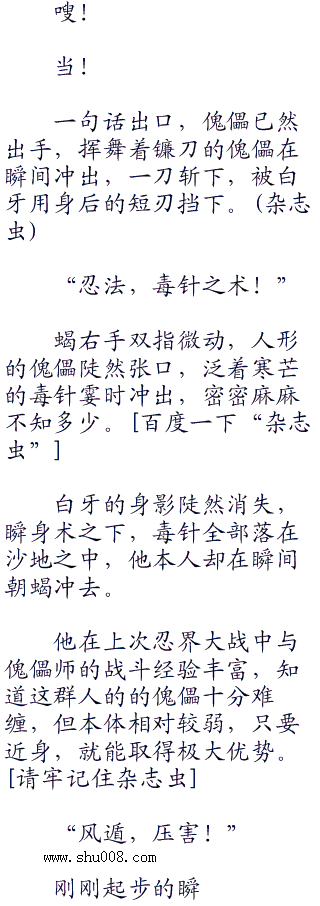 嗖！
当！
一句话出口，傀儡已然
出手，挥舞着镰刀的傀儡在
瞬间冲出，一刀斩下，被白
牙用身后的短刃挡下。(杂志
虫)
“忍法，毒针之术！”
蝎右手双指微动，人形
的傀儡陡然张口，泛着寒芒
的毒针霎时冲出，密密麻麻
不知多少。[百度一下“杂志
虫”]
白牙的身影陡然消失，
瞬身术之下，毒针全部落在
沙地之中，他本人却在瞬间
朝蝎冲去。
他在上次忍界大战中与
傀儡师的战斗经验丰富，知
道这群人的的傀儡十分难
缠，但本体相对较弱，只要
近身，就能取得极大优势。
[请牢记住杂志虫]
“风遁，压害！”
www.shu008.com
刚刚起步的瞬